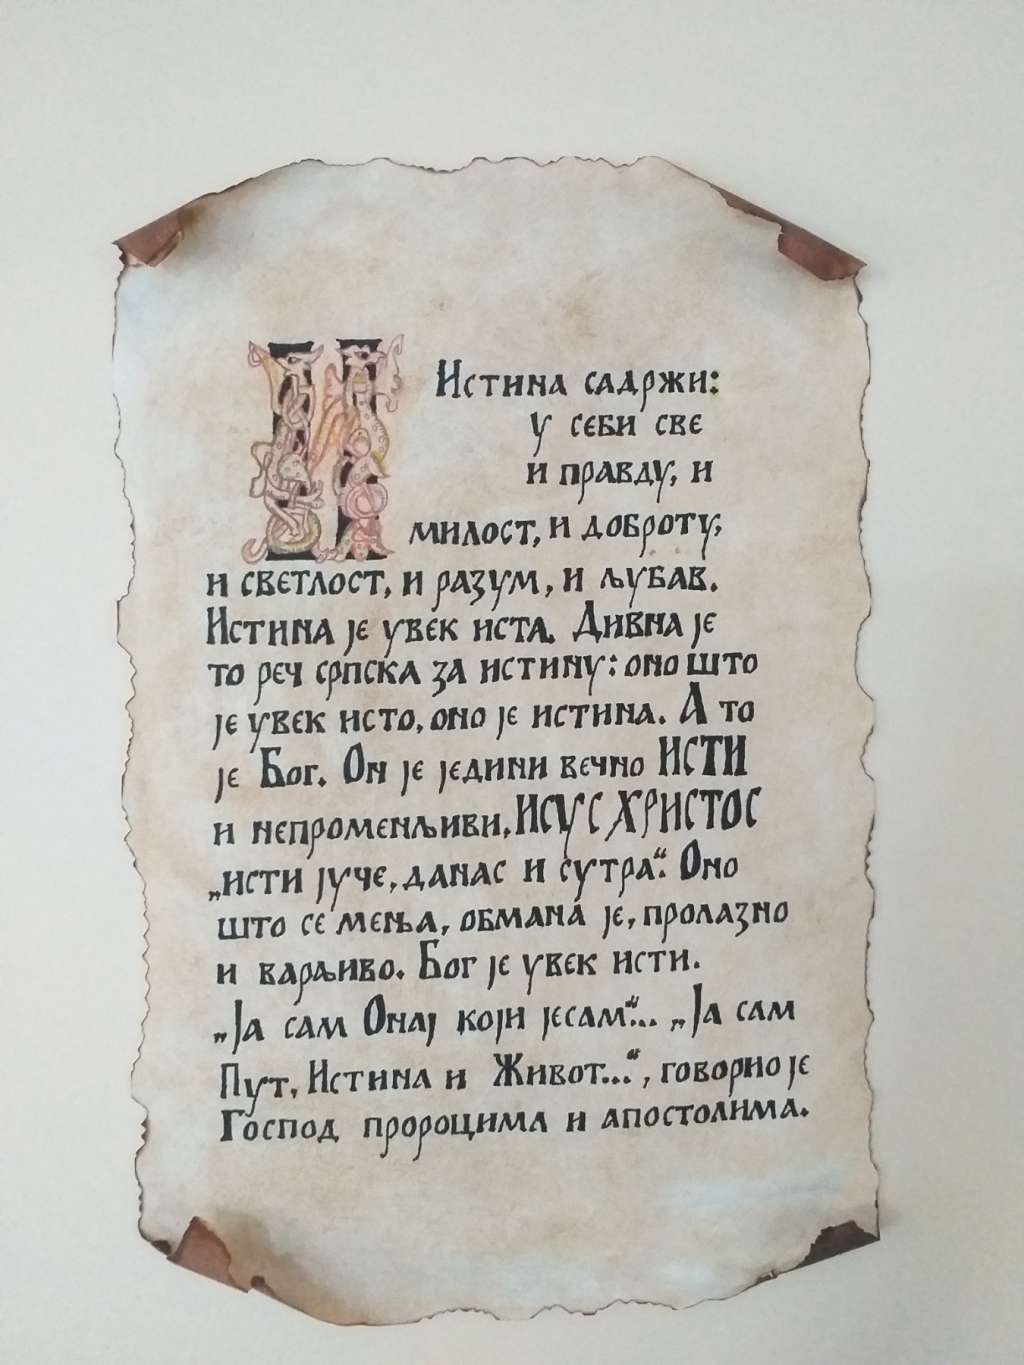 И Истина садржи:
у себи све
и правду, и
милост, и доброту,
и светлост, и разум, и љубав.
Истина је увек иста. Дивна је
то реч српска за истину: оно што
је увек исто, оно је истина. А то
је Бог. Он је једини вечно ИСТИ
и непроменљиви, ИСУС ХРИСТОС
„исти јуче, данас и сутра“. Оно
што се мења, обмана је, пролазно
и варљиво. Бог је увек исти.
„Ја сам Онај који јесам“... „Ја сам
Пут, Истина и Живот...“, говорио је
Господ пророцима и апостолима.